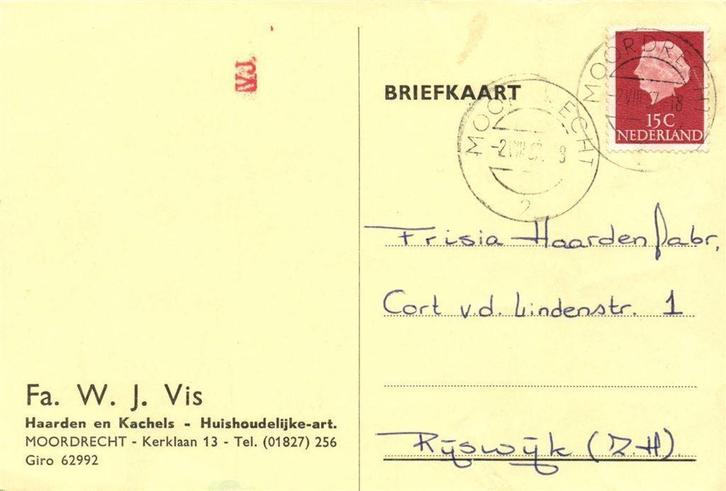 V.J.
BRIEFKAART
MOORDRECHT
15 C
NEDERLAND
MOORDRECHT
2
Frisia Haardenfabr,
Cort v.d. Lindenstr. 1
Rijswijk (Z.H).
Fa. W. J. Vis
Haarden en Kachels - Huishoudelijke-art.
MOORDRECHT - Kerklaan 13 - Tel. (01827) 256
Giro 62992